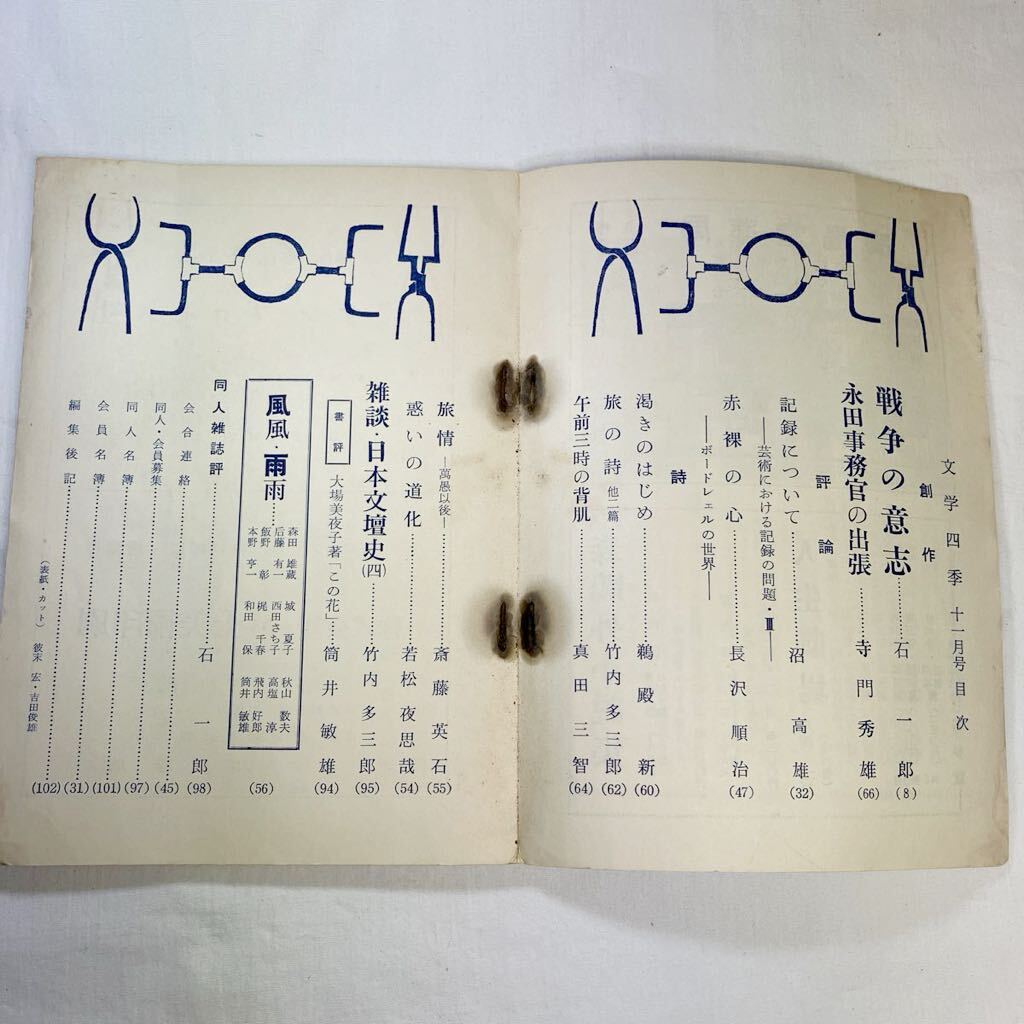 文学四季 十一月号目次
創作
戦争の意志……石一郎 (8)
永田事務官の出張……寺門秀雄 (66)
評論
記録について……沼高雄 (32)
――芸術における記録の問題・Ⅲ――
赤裸の心……長沢順治 (47)
――ボードレェルの世界――
詩
渇きのはじめ……鵜殿新 (60)
旅の詩 他一篇……竹内多三郎 (62)
午前三時の背肌……真田三智 (64)
旅情 ―萬愚以後―……斎藤英石 (55)
惑いの道化……若松夜思哉 (54)
雑談・日本文壇史(四)……竹内多三郎 (95)
書評 大場美夜子著「この花」……筒井敏雄 (94)
風風・雨雨…… (56)
森田雄蔵 城夏子 秋山数夫
后藤有一 西田さち子 高塩淳
飯野彰 梶千春 飛内好郎
本野亨一 和田保 筒井敏雄
同人雑誌評……石一郎 (98)
会合連絡…… (45)
同人・会員募集…… (97)
同人名簿…… (101)
会員名簿…… (31)
編集後記…… (102)
(表紙・カット) 彼末宏・吉田俊雄